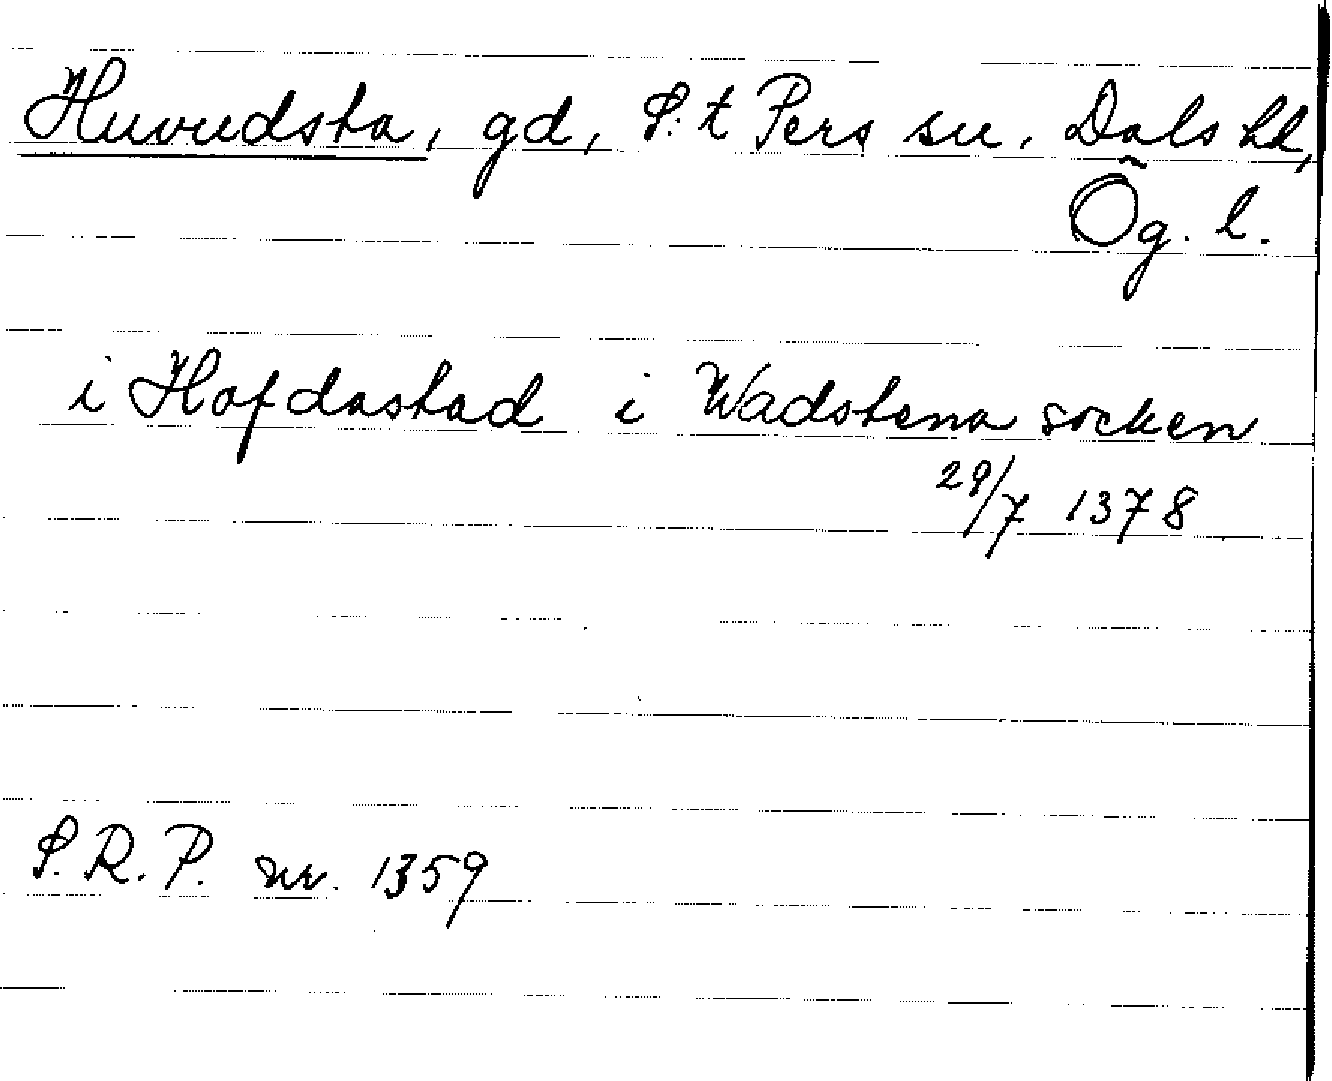 Huvudsta, gd, S:t Pers sn, Dals hd,
Ög. l.
i Hofdastad i Wadstena socken
29/7 1378
S.R.P. nr. 1359